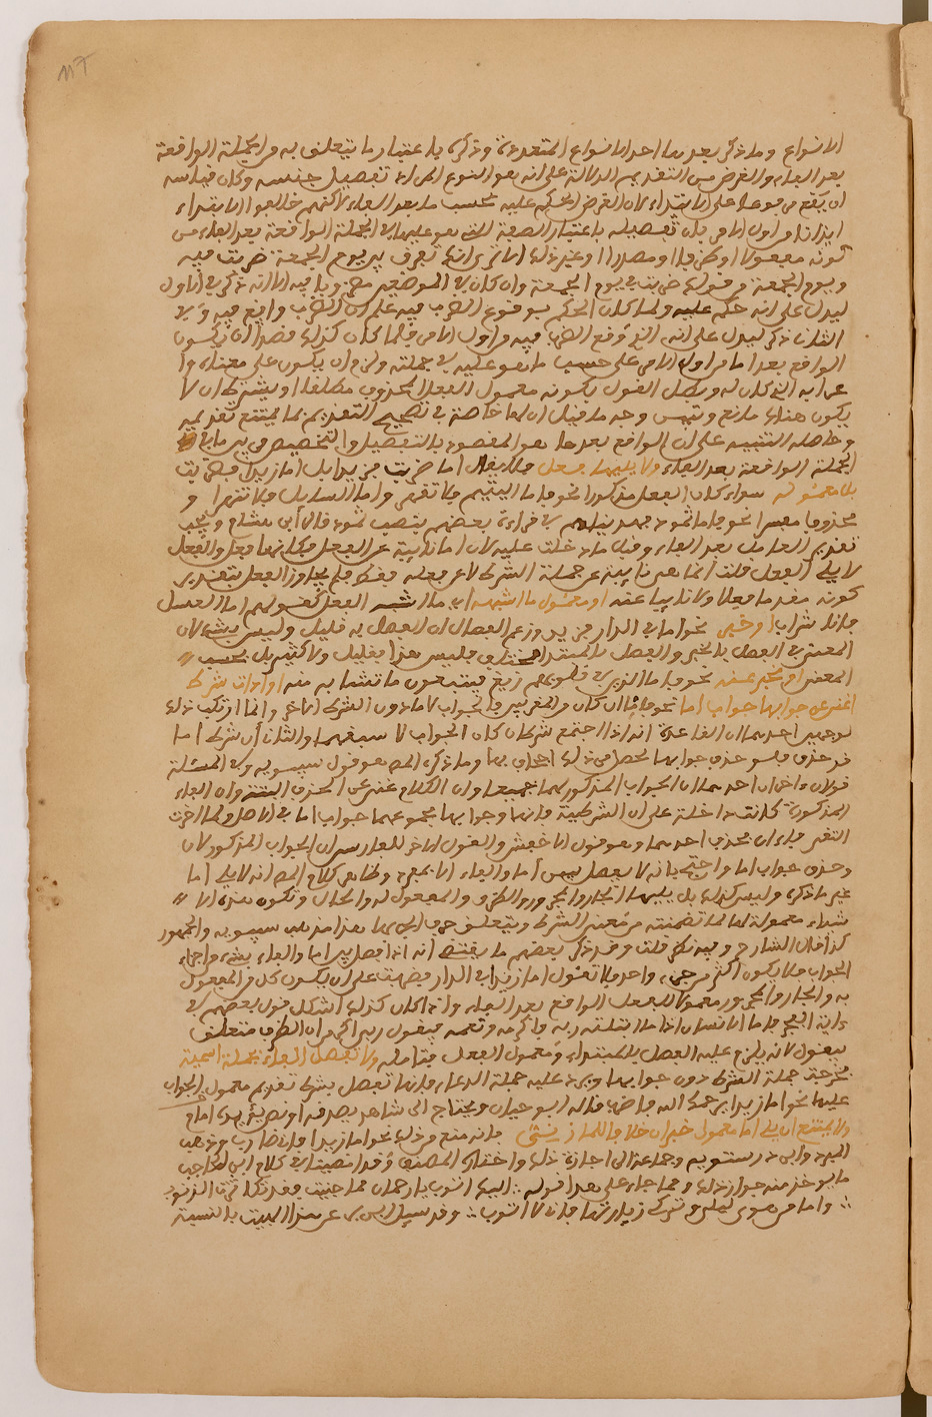 الانواع وما ذكر بعدها احد الانواع المتعددة وذكره باعتبار ما يتعلق به من الجملة الواقعة
بعد الفاء والغرض من التقديم الدلالة على انه هو النوع المراد تفصيل جنسه وكان قياسه
ان يقع مرفوعا على الابتداء لان الغرض الحكم عليه بحسب ما بعد الفاء لكنهم خالفوا الابتداء
ايذانا من اول الامر بان تفصيله باعتبار الصفة التي هو عليها في الجملة الواقعة بعد الفاء من
كونه مفعولا او ظرفا او مصدرا او غير ذلك الا ترى انك تفرق بين يوم الجمعة ضربت فيه
ويوم الجمعة في قولك ضربت في يوم الجمعة وان كان في الموضعين مضروبا فيه الا انه ذكر في الاول
ليدل على انه حكم عليه ولما كان الحكم بوقوع الضرب فيه علم ان الضرب واقع فيه وفي
الثاني ذكر ليدل على انه الذي وقع الضرب فيه من اول الامر فلما كان كذلك قصد ان يكون
الواقع بعد اما من اول الامر على حسب ما هو عليه في جملته ولزم ان يكون على معناه و
اعرابه الذي كان له وبطل القول بكونه معمول الفعل المحذوف مطلقا او بشرط ان لا
يكون هناك مانع وتبين وجه ما قيل ان لها خاصة في تصحيح التقديم بما يمتنع تقديمه
وحاصله التنبيه على ان الواقع بعدها هو المقصود بالتفصيل والتخصيص من بين ما في
الجملة الواقعة بعد الفاء ولا يليها فعل فلا يقال اما ضربت فزيدا بل اما زيدا فضربت
بل معموله سواء كان الفعل مذكورا نحو فاما اليتيم فلا تقهر واما السائل فلا تنهر او
محذوفا مفسرا نحو واما ثمود فهديناهم في قراءة بعضهم بنصب ثمود قال ابن هشام ويجب
تقدير العامل بعد الفاء وقبل ما دخلت عليه لان اما نائبة عن الفعل فكانها فعل والفعل
لا يلي الفعل قلت انما هي نائبة عن جملة الشرط لا عن فعله فقط فلم يجاوز الفعل بتقدير
كونه مقدما فعلا ولا نائبا عنه او معمول ما اشبهه اي ما اشبه الفعل كقولهم اما العسل
فانا شراب او خبر نحو اما في الدار فزيد وزعم الصفار ان الفصل به قليل وليس بشيء لان
المعتبر الفصل بالخبر والفصل بالمبتدا فليس هذا بقليل ولا كثير بل بحسب
المعنى او مخبر عنه نحو فاما الذين في قلوبهم زيغ فيتبعون ما تشابه منه او ادات شرط
اغنى عن جوابها جواب اما نحو فاما ان كان من المقربين فالجواب لاما دون الشرط الاخر وانما ارتكب ذلك
لوجهين احدهما ان القاعدة انه اذا اجتمع شرطان كان الجواب لاسبقهما والثاني ان شرط اما
قد حذف فلو حذف جوابها لحصل في ذلك اجحاف بها وما ذكره المص هو قول سيبويه وفي المسئلة
قولان اخران احدهما ان الجواب المذكور لهما جميعا وان الكلام عنده على الحذف البتة وان الفاء
المذكورة كانت داخلة على ان الشرطية فانها وجوابها مجموعهما جواب اما في الاصل ولما اخرت
التقى فاءان فحذفت احدهما وهو قول الاخفش والقول الاخر للفارسي ان الجواب المذكور لان
وحذف جواب اما واحتج بانه لا يفصل بين اما والفاء الا بمفرد وظاهر كلام المص انه لا يلي اما
غير ما ذكره وليس كذلك بل يليها الجار والمجرور والظرف والمفعول له والحال وتكون هذه الا
شياء معمولة لها لما تضمنته من معنى الشرط ويتعلق حرف الجر بها هذا مذهب سيبويه والجمهور
كذا قال الشارح وفيه نظر قلت وقد ذكر بعضهم ما يقتضي انه اذا فصل بين اما والفاء بشيء من اجزاء
الجواب فلا يكون اكثر من جزء واحد فلا تقول اما زيد في الدار فضربت على ان يكون كل من المفعول
به والجار والمجرور معمولا للفعل الواقع بعد الفاء واذا كان كذلك اشكل قول بعضهم في
اية الفجر فاما الانسان اذا ما ابتلاه ربه فاكرمه ونعمه فيقول ربي اكرمن ان الظرف متعلق
بيقول لانه يلزم عليه الفصل بالمبتدا ومعمول الفعل فتامله ولا تفصل الفاء بجملة اسمية
فخرجت جملة الشرط دون جوابها ويرد عليه جملة الدعاء فانها تفصل بشرط تقديم معمول الجواب
عليها نحو اما زيدا يرحمك الله فاضرب قاله ابو حيان ويحتاج الى شاهد يصدقه او نص من امام
ولا يمتنع ان يلي اما معمول خبر ان خلافا للمازني فانه منع من ذلك نحو اما زيدا فاني ضارب وذهب
المبرد وابن درستويه وجماعة الى اجازة ذلك واختاره المصنف وقد افصت في كلام ابن الحاجب
ما يوخذ منه جواز ذلك ومما جاء على هذا قوله اليك اتوب يا رحمان مما جنيت فقد تكاثرت الذنوب
واما من هوى ليلى وتركي زيارتها فاني لا اتوب وقد سئل ابن بري عن هذا البيت بالنسبة